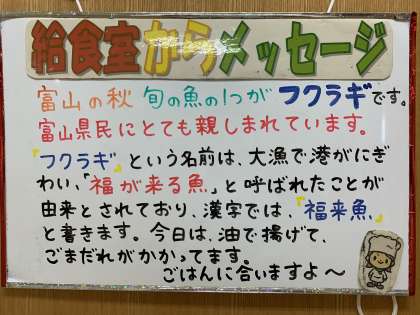 給食室からメッセージ
富山の秋 旬の魚の1つが フクラギです。
富山県民にとても親しまれています。
『フクラギ』という名前は、大漁で港がにぎ
わい、「福が来る魚」と呼ばれたことが
由来とされており、漢字では、『福来魚』
と書きます。今日は、油で揚げて、
ごまだれがかかってます。
ごはんに合いますよ〜